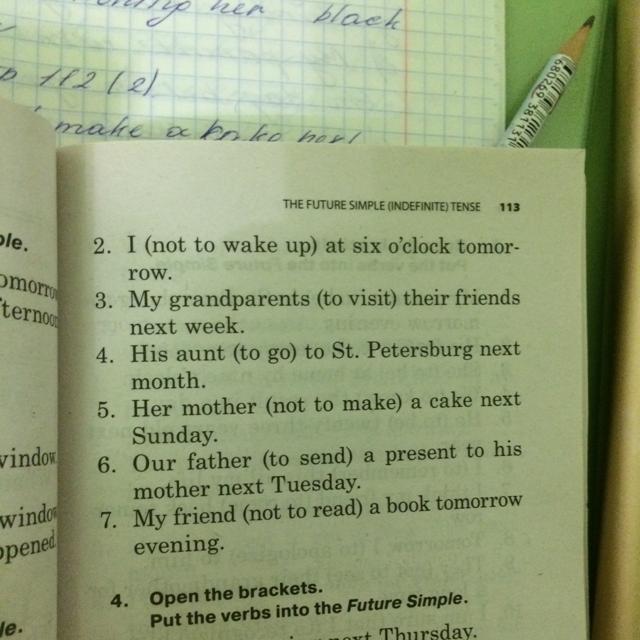 her black
112 (2)
make a
THE FUTURE SIMPLE (INDEFINITE) TENSE 113
2. I (not to wake up) at six o'clock tomor-
row.
3. My grandparents (to visit) their friends
next week.
4. His aunt (to go) to St. Petersburg next
month.
5. Her mother (not to make) a cake next
Sunday.
6. Our father (to send) a present to his
mother next Tuesday.
7. My friend (not to read) a book tomorrow
evening.
4. Open the brackets.
Put the verbs into the Future Simple.
next Thursday.